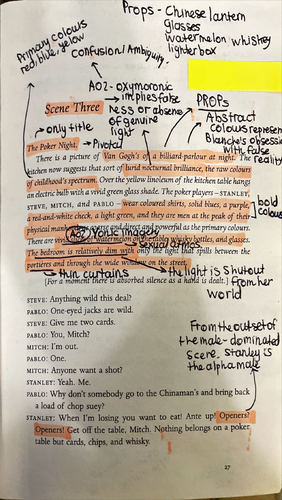 Props - Chinese lantern
glasses
watermelon whiskey
lighterbox
Primary colours
red, blue, yellow
confusion/Ambiguity.
AO2 - oxymoronic
implies false
ness or absence
of genuine
light
PROPS
Abstract
colours represent
Blanche's obsession
with false
reality
Scene Three
only title
The Poker Night.
Pivotal
There is a picture of Van Gogh's of a billiard-parlour at night. The
kitchen now suggests that sort of lurid nocturnal brilliance, the raw colours
of childhood's spectrum. Over the yellow linoleum of the kitchen table hangs
an electric bulb with a vivid green glass shade. The poker players – STANLEY,
STEVE, MITCH, and PABLO – wear coloured shirts, solid blues, a purple,
a red-and-white check, a light green, and they are men at the peak of their
bold
colours
physical as coarse and direct and powerful as the primary colours.
Yonic imagery
There are of watermelon on the whisky bottles, and glasses.
sexual atmos
The bedroom is relatively dim with only the light that spills between the
portières and through the wide window on the street.
thin curtains
the light is shut out
from her
world
[For a moment there is absorbed silence as a hand is dealt.]
STEVE: Anything wild this deal?
PABLO: One-eyed jacks are wild.
STEVE: Give me two cards.
PABLO: You, Mitch?
MITCH: I'm out.
PABLO: One.
MITCH: Anyone want a shot?
STANLEY: Yeah. Me.
PABLO: Why don't somebody go to the Chinaman's and bring back
a load of chop suey?
STANLEY: When I'm losing you want to eat! Ante up! Openers?
Openers! Get off the table, Mitch. Nothing belongs on a poker
table but cards, chips, and whisky.
From the outset of
the male-dominated
scene. Stanley is
the alpha male
27